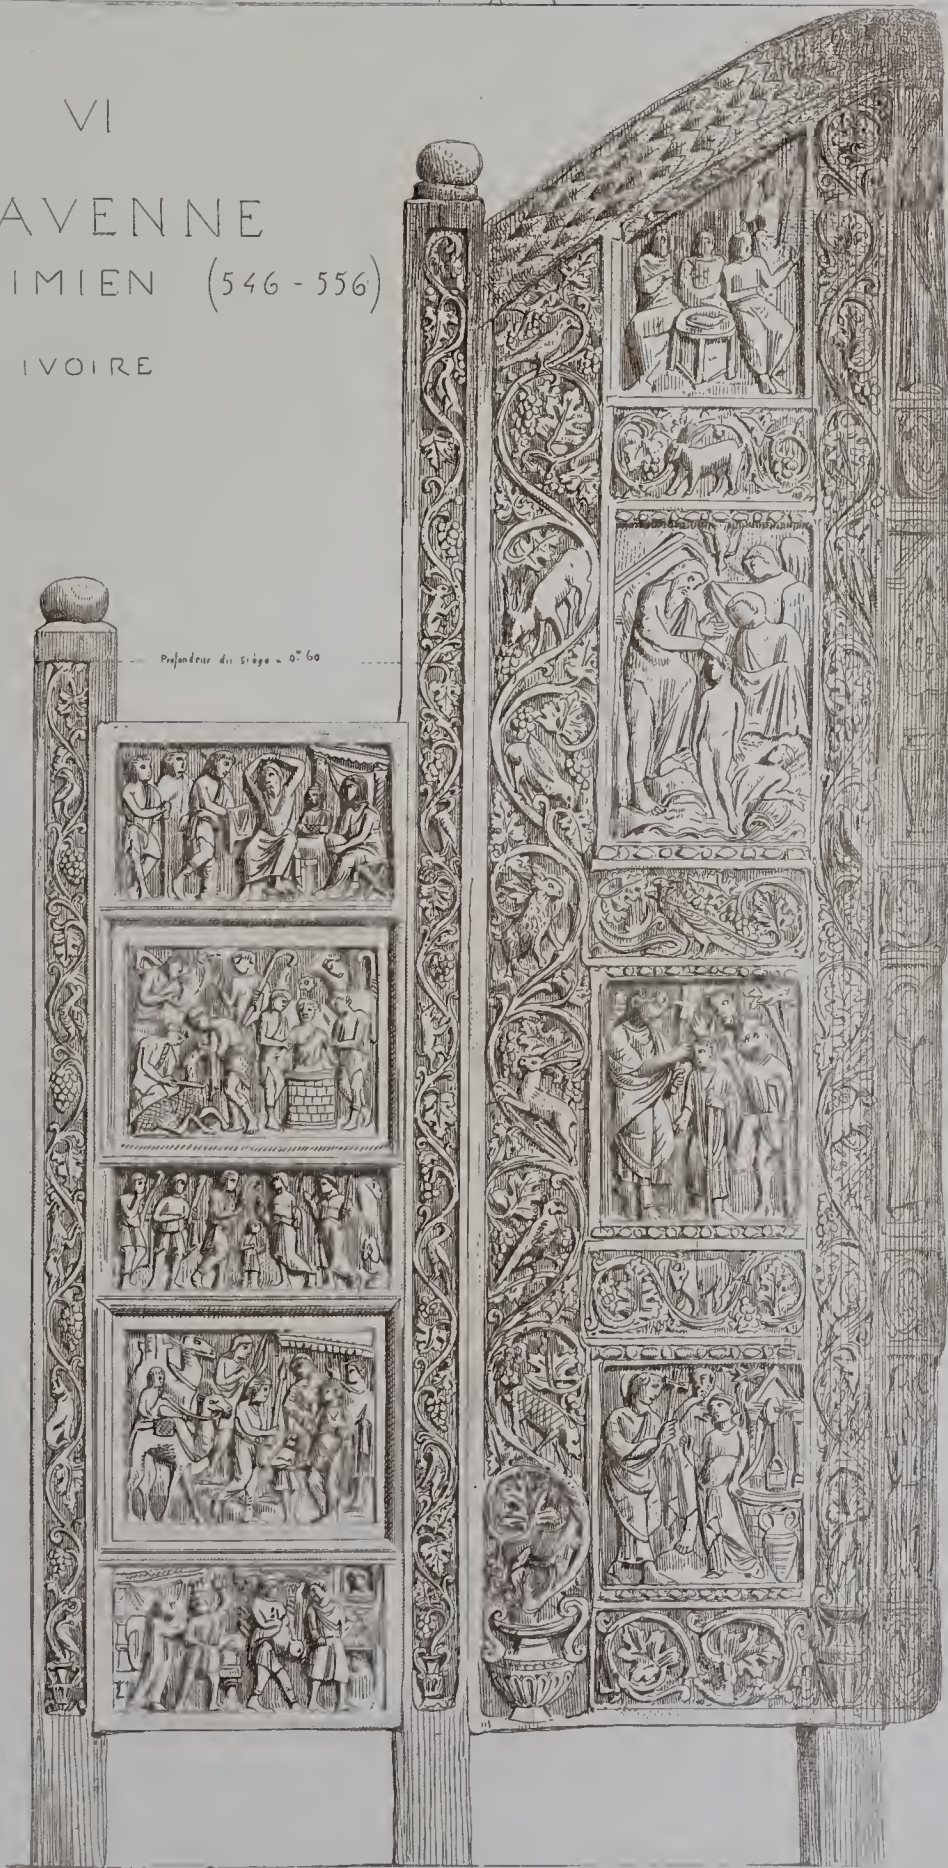 VI
AVENNE
IMIEN (546-556)
IVOIRE
Profondeur du siège = 0.m 60